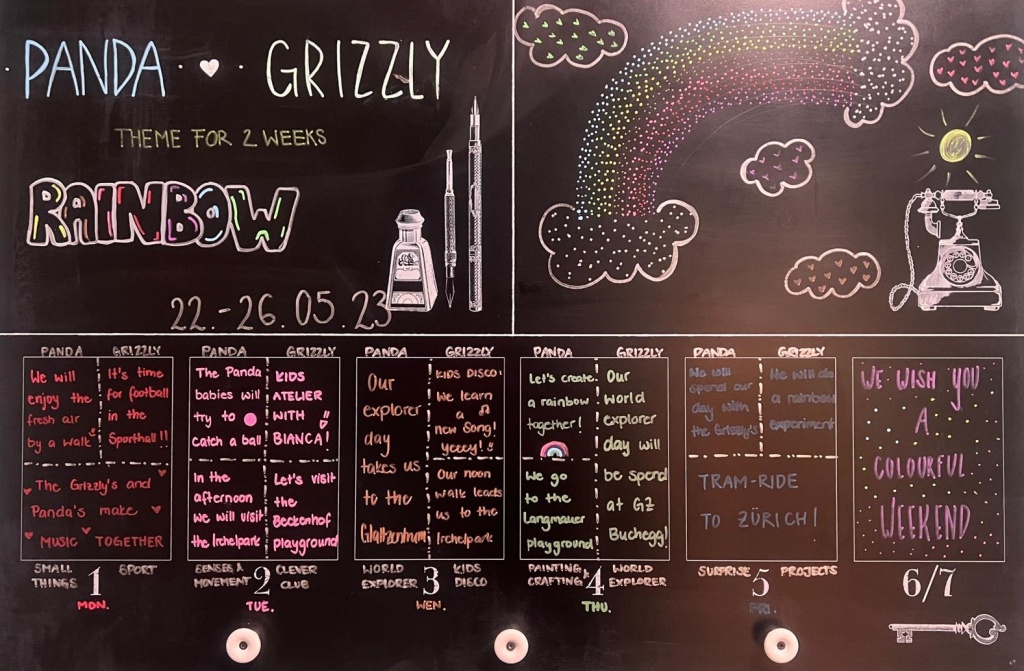 PANDA · GRIZZLY
THEME FOR 2 WEEKS
RAINBOW
22.-26.05.23
PANDA
We will
enjoy the
fresh air
by a walk
GRIZZLY
It's time
for football
in the
Sporthall!!
The Grizzly's and
Panda's make
MUSIC TOGETHER
SMALL
THINGS
1
SPORT
MON.
PANDA
The Panda
babies will
try to
catch a ball
GRIZZLY
KIDS
ATELIER
WITH
BIANCA!
In the
afternoon
we will visit
the Irchelpark
Let's visit
the
Beckenhof
playground
SENSES &
MOVEMENT
2
CLEVER
CLUB
TUE.
PANDA
Our
explorer
day
takes us
to the
Glattzentrum
GRIZZLY
KIDS DISCO:
We learn
a
new Song!
yeeey!
Our noon
walk leads
us to the
Irchelpark
WORLD
EXPLORER
3
KIDS
DISCO
WEN.
PANDA
Let's create
a rainbow
together!
We go
to the
Langmauer
playground!
GRIZZLY
Our
world
explorer
day will
be spend
at GZ
Buchegg!
PAINTING
CRAFTING
4
WORLD
EXPLORER
THU.
PANDA
We will
spend our
day with
the Grizzly's
GRIZZLY
We will do
a rainbow
experiment
TRAM-RIDE
TO ZÜRICH!
SURPRISE
5
PROJECTS
FRI.
WE WISH YOU
A
COLOURFUL
WEEKEND
6/7